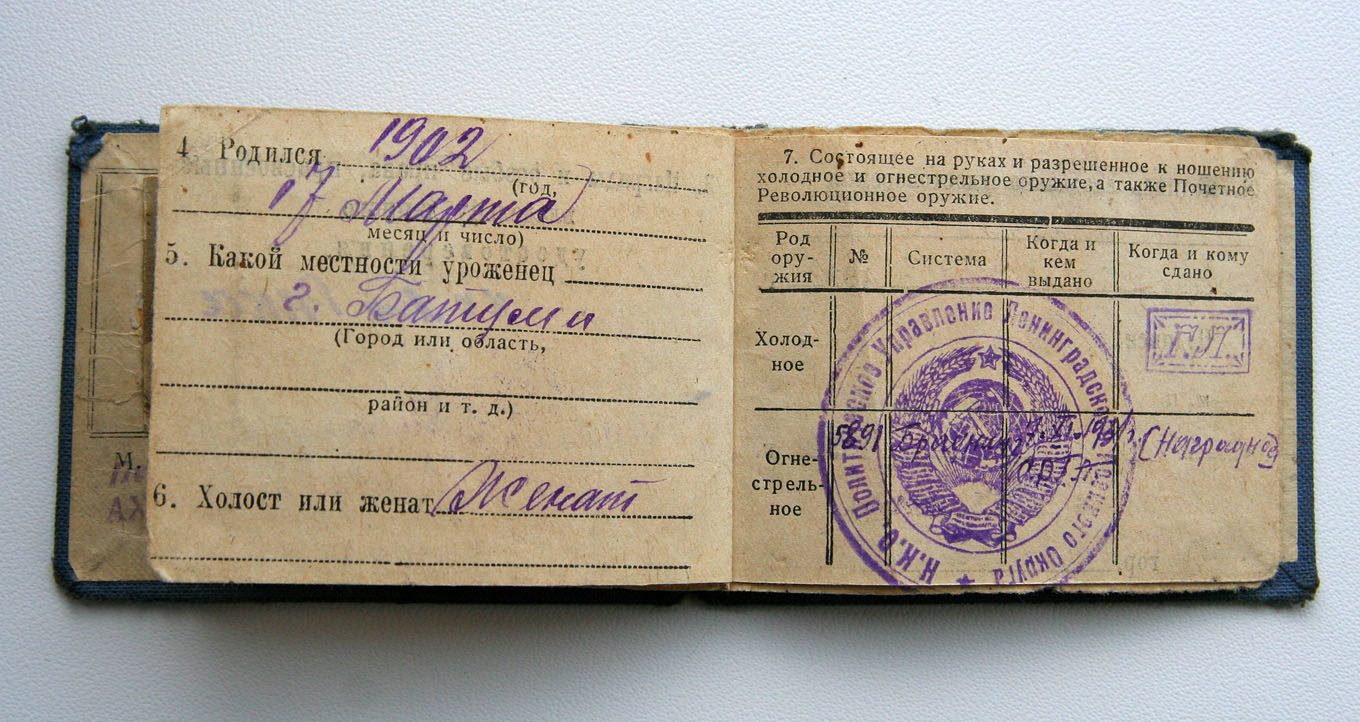 4 Родился 1902
(год,
17 Марта
месяц и число)
5. Какой местности уроженец
г. Батуми
(Город или область,
район и т. д.)
6. Холост или женат Женат
М.
АХ
7. Состоящее на руках и разрешенное к ношению
холодное и огнестрельное оружие, а также Почетное
Революционное оружие.
Род
ору-
жия
№
Система
Когда и
кем
выдано
Когда и кому
сдано
Холод-
ное
Огне-
стрель-
ное
5891 Браунинг
(Наградное
Н.К.О Политическое Управление Ленинградского Военного Округа